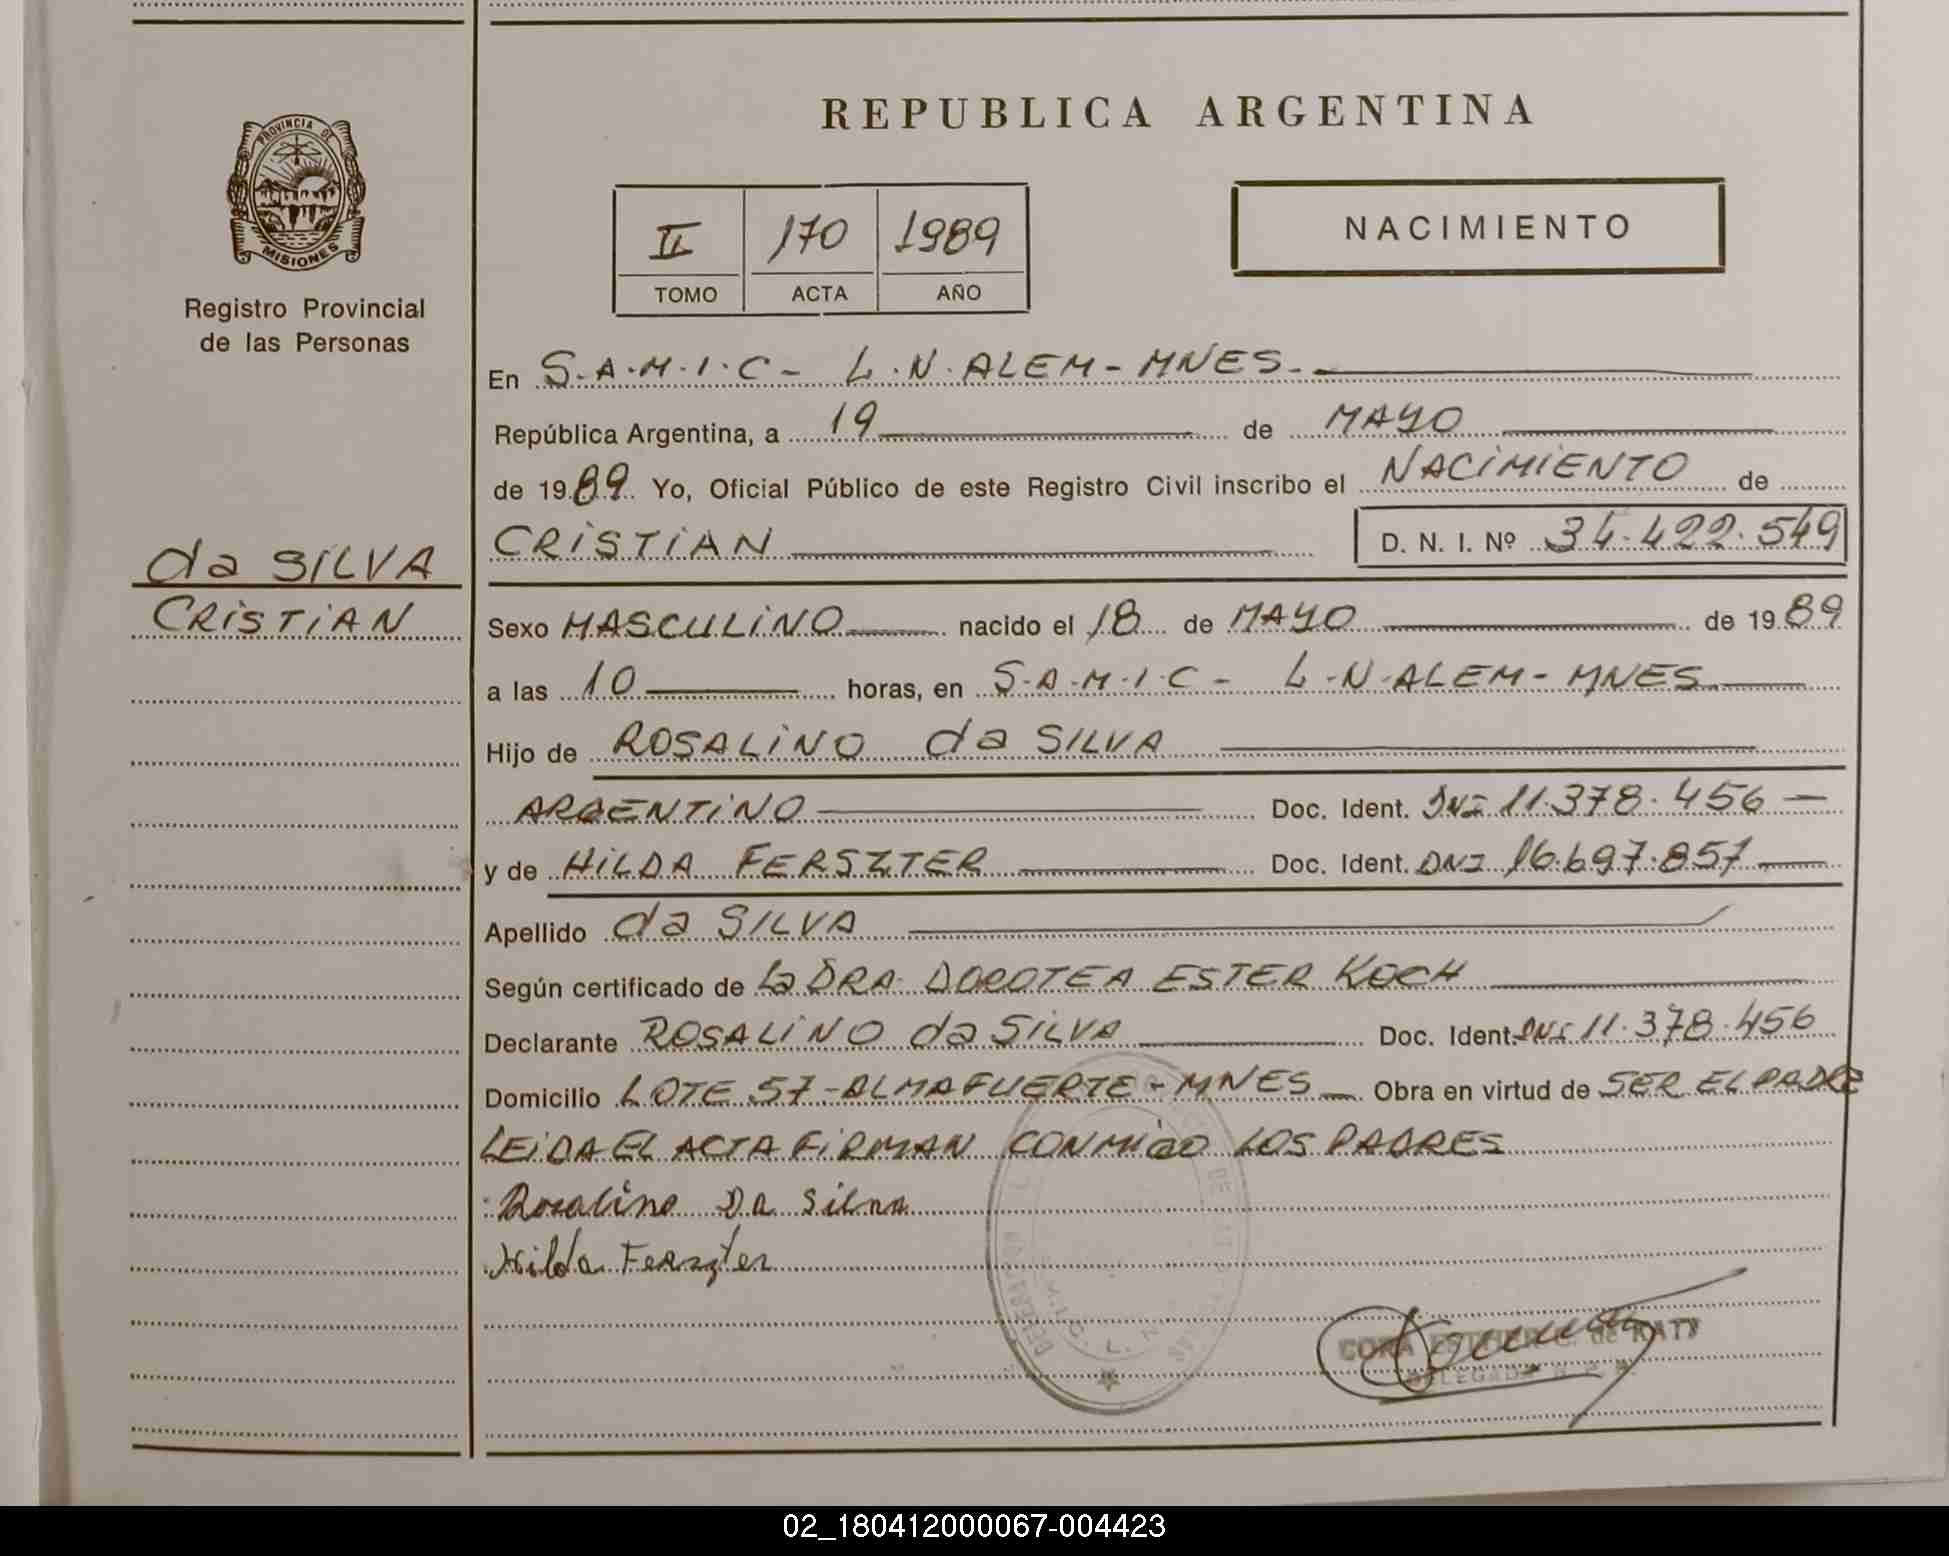 PROVINCIA DE
MISIONES
Registro Provincial
de las Personas
da SILVA
CRISTIAN
REPUBLICA ARGENTINA
II 170 1989
TOMO ACTA AÑO
NACIMIENTO
En S.A.M.I.C - L.N.ALEM - MNES.
República Argentina, a 19 de MAYO
de 1989 Yo, Oficial Público de este Registro Civil inscribo el NACIMIENTO de
CRISTIAN D. N. I. Nº 34.422.549
Sexo MASCULINO nacido el 18 de MAYO de 1989
a las 10 horas, en S.A.M.I.C - L.N.ALEM - MNES
Hijo de ROSALINO da SILVA
ARGENTINO Doc. Ident. DNI 11.378.456
y de HILDA FERSZTER Doc. Ident. DNI 16.697.857
Apellido da SILVA
Según certificado de La DRA. DOROTEA ESTER KOCH
Declarante ROSALINO da SILVA Doc. Ident. DNI 11.378.456
Domicilio LOTE 57 - ALMAFUERTE - MNES Obra en virtud de SER EL PADRE
LEIDA EL ACTA FIRMAN CONMIGO LOS PADRES
Rosalino Da Silva
Hilda Ferszter
CORA ESTHER de KATY
DELEGADA
02_180412000067-004423